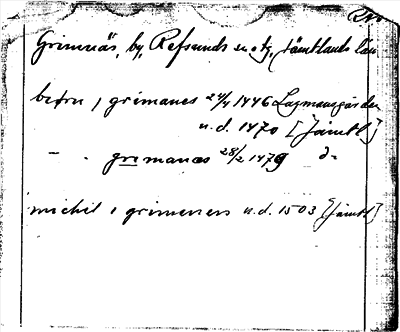 Grimnäs, by, Refsunds sn o tg, Jämtlands län
pedru i grimanes 24/4 1446 Lagmansgården
u.d. 1470 [Jämtl]
- . grimanæs 28/2 1479 d:o
michil i grimeners u.d. 1503 [Jämtl]